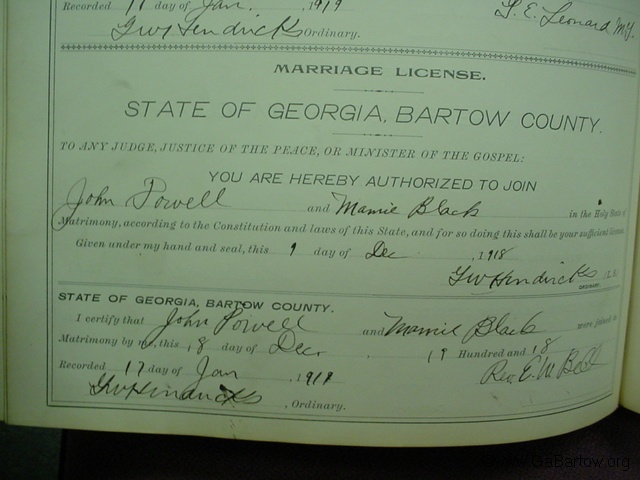 Recorded 17 day of Jan. 1919 S. E. Leonard M.G.
GW Hendricks Ordinary.
MARRIAGE LICENSE.
STATE OF GEORGIA, BARTOW COUNTY.
TO ANY JUDGE, JUSTICE OF THE PEACE, OR MINISTER OF THE GOSPEL:
YOU ARE HEREBY AUTHORIZED TO JOIN
John Powell and Mamie Black in the Holy State of
Matrimony, according to the Constitution and laws of this State, and for so doing this shall be your sufficient license.
Given under my hand and seal, this 9 day of Dec , 1918
GW Hendricks (L.S.)
ORDINARY.
STATE OF GEORGIA, BARTOW COUNTY.
I certify that John Powell and Mamie Black were joined in
Matrimony by me, this 8 day of Dec. , 19 Hundred and 18
Recorded 17 day of Jan , 1919 Rev. E. M. Bell
GW Hendricks , Ordinary.
GaBartow.org